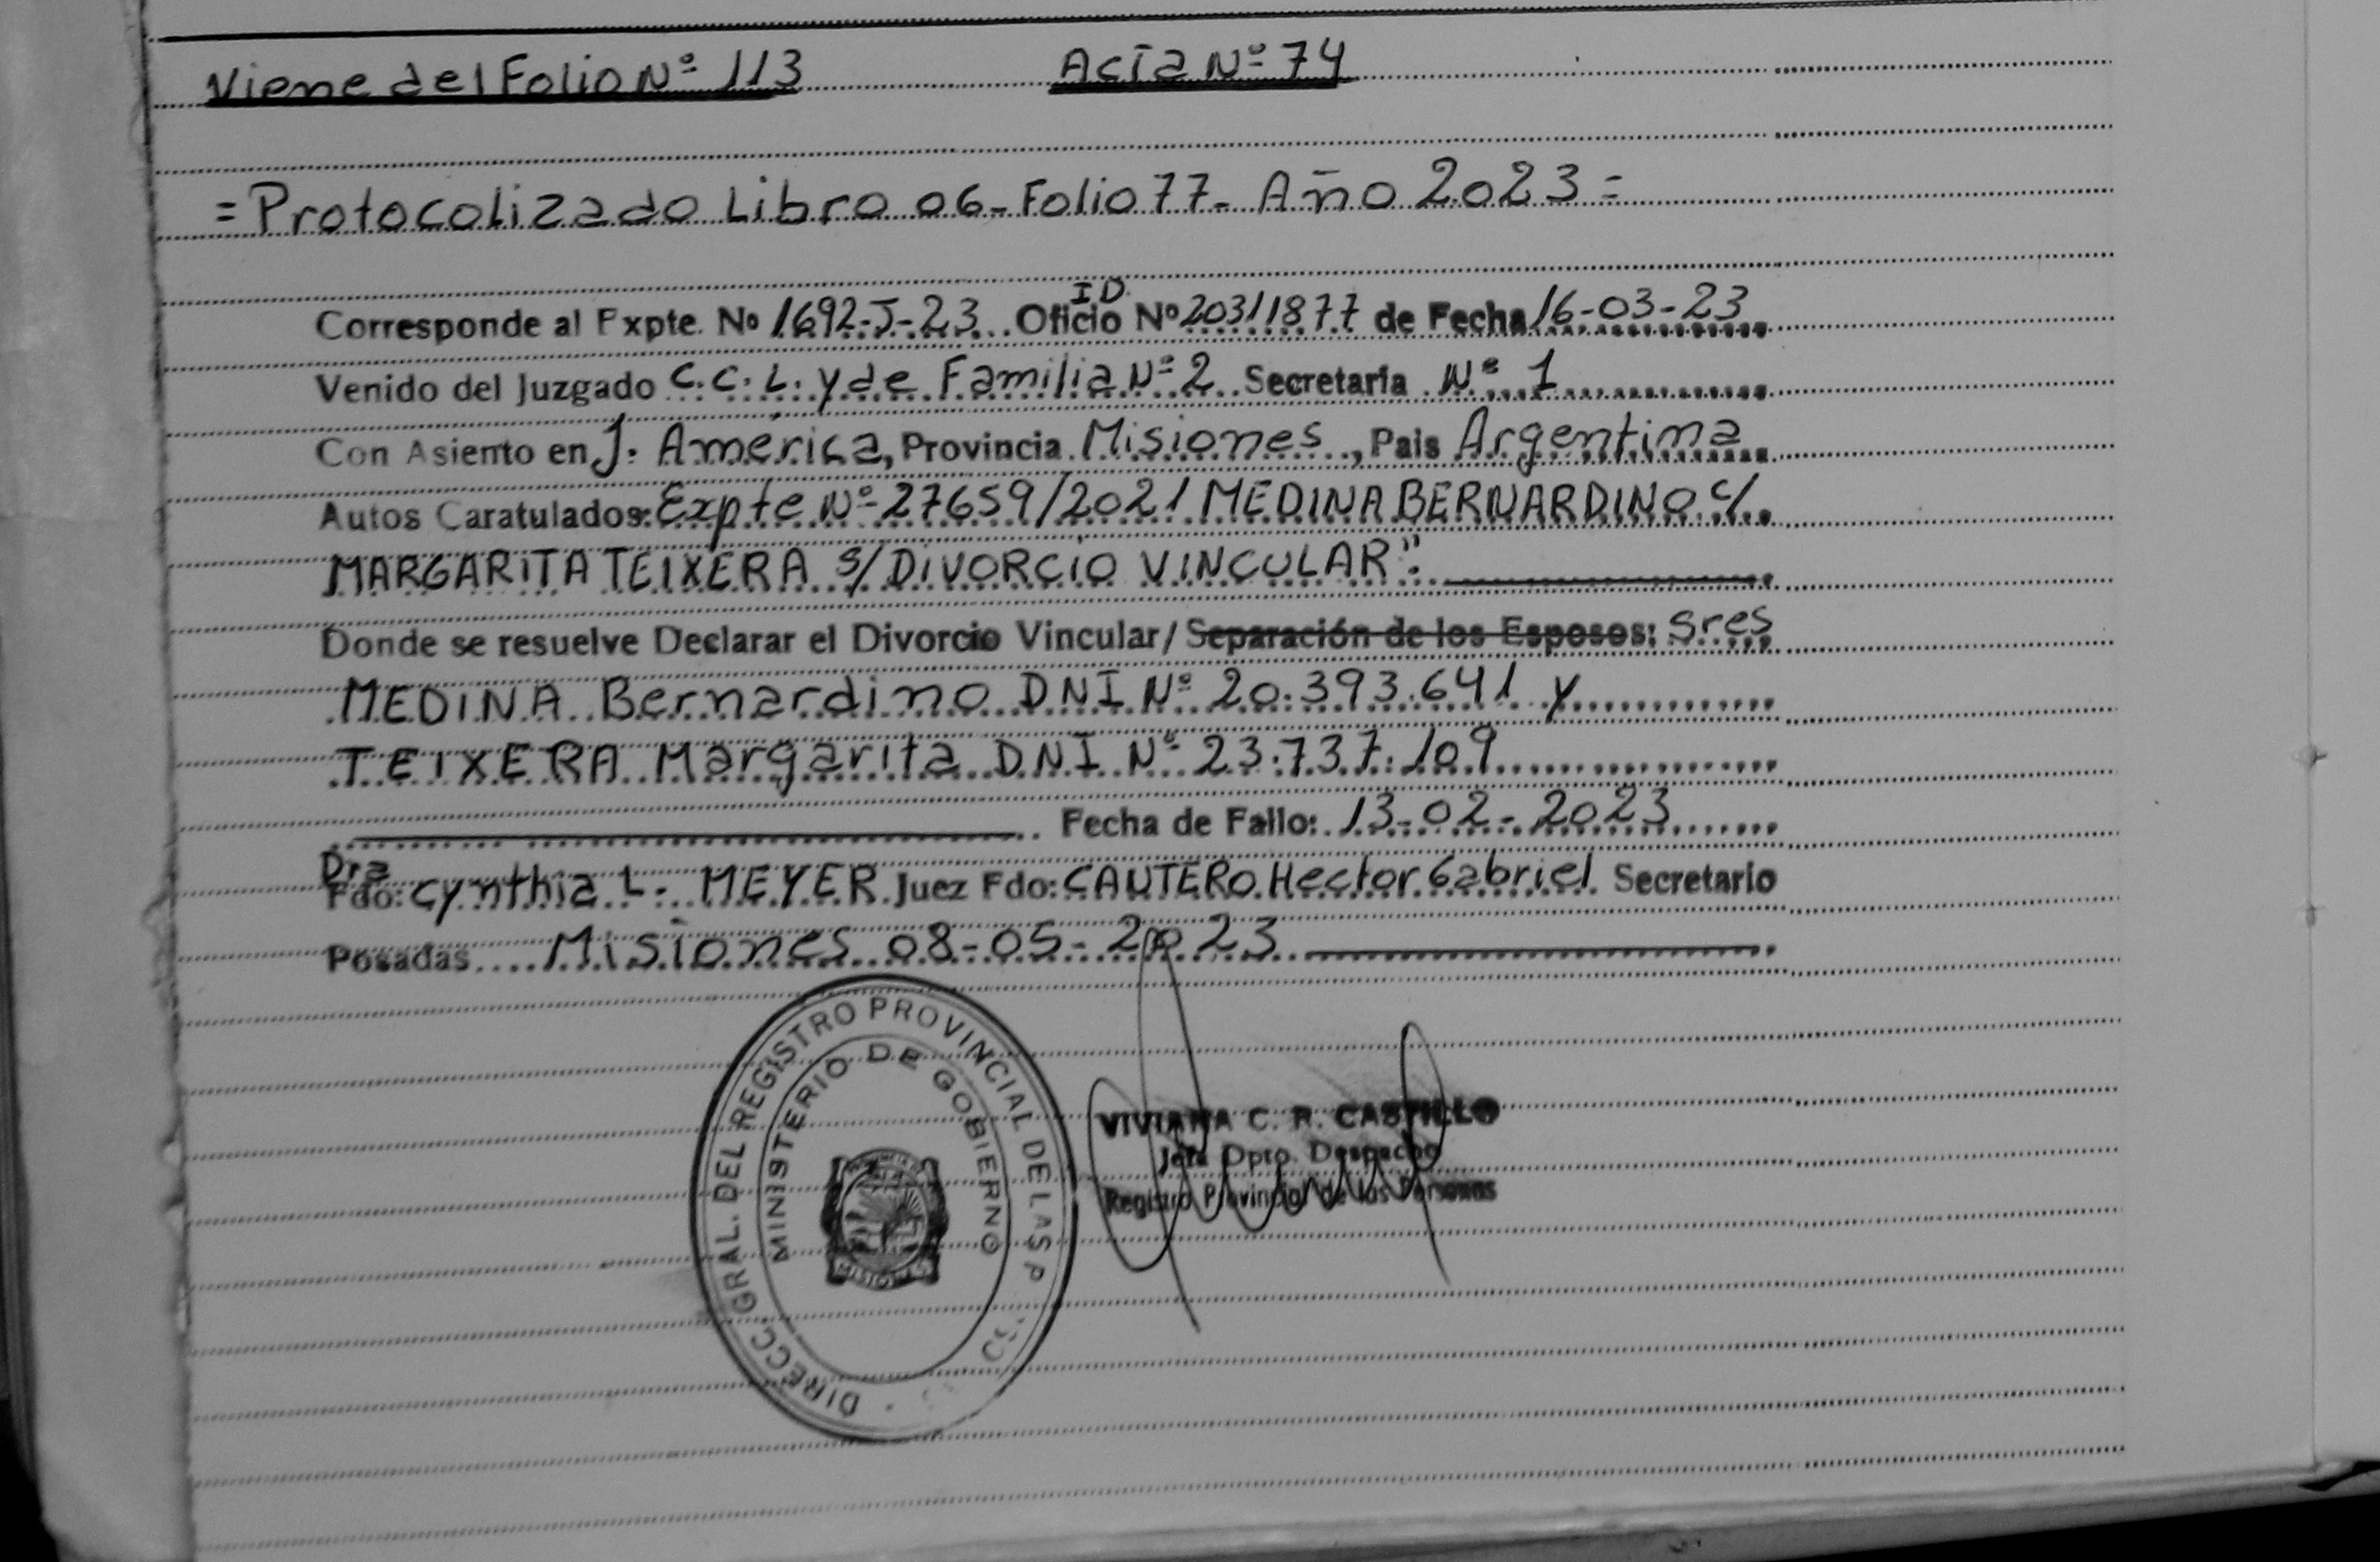 Viene del Folio Nº 113 Acta Nº 74
= Protocolizado Libro 06- Folio 77- Año 2023 =
Corresponde al Expte. No 1692-J-23 ID Oficio Nº 20311877 de Fecha 16-03-23
Venido del Juzgado C.C.L. y de Familia Nº 2 Secretaría Nº 1
Con Asiento en J. América, Provincia Misiones, Pais Argentina
Autos Caratulados: Expte Nº 27659/2021 MEDINA BERNARDINO c/
MARGARITA TEIXERA s/ DIVORCIO VINCULAR".
Donde se resuelve Declarar el Divorcio Vincular/ Separación de los Esposos: Sres
MEDINA Bernardino DNI Nº 20.393.641 y
TEIXERA Margarita DNI Nº 23.737.109
Fecha de Fallo: 13-02-2023
Dra
Fdo: Cynthia L. MEYER Juez Fdo: CAUTERO Hector Gabriel Secretario
Posadas Misiones 08-05-2023
DIRECC. GRAL. DEL REGISTRO PROVINCIAL DE LAS P
MINISTERIO DE GOBIERNO
MISIONES
VIVIANA C. R. CASTILLO
Jefa Dpto. Despacho
Registro Provincial de las Personas